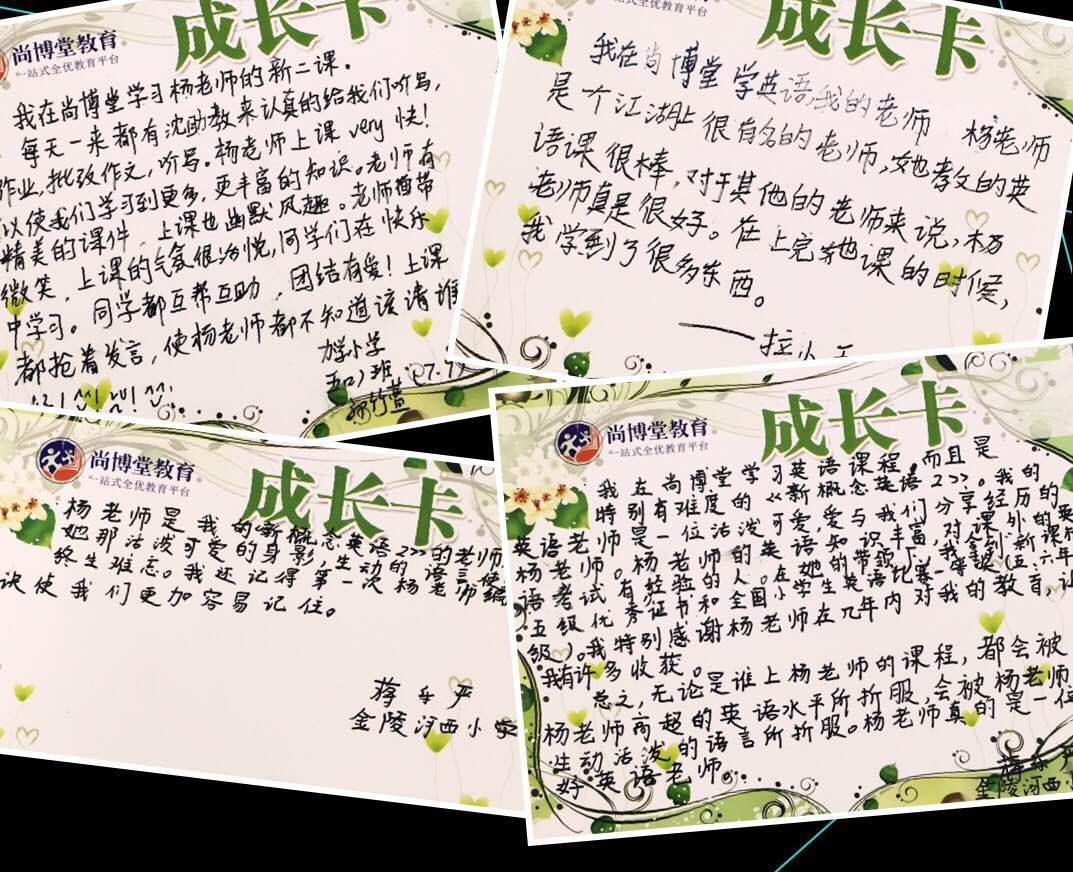 尚博堂教育
一站式全优教育平台
成长卡
我在尚博堂学习杨老师的新二课.
每天一来都有沈助教来认真的给我们听写,
作业,批改作文,听写。杨老师上课very快!
以使我们学习到更多,更丰富的知识。老师有
精美的课件,上课也幽默风趣。老师面带
微笑,上课的气氛很洽悦,同学们在快乐
中学习。同学都互帮互助,团结有爱!上课
都抢着发言,使杨老师都不知道该请谁
小学
一站式全优教育平台
成长卡
我在尚博堂学英语,我的老师 杨老师
是个江湖上很有名的老师,她教文的英
语课很棒,对于其他的老师来说,杨
老师真是很好。在上完她课的时候,
我学到了很多东西。
尚博堂教育
一站式全优教育平台
成长卡
杨老师是我的新概念英语2>>的老师.
她那活泼可爱的身影,生动的语言,使
终生难忘。我还记得第一次杨老师编
诀使我们更加容易记住。
蒋 严
金陵河西小学
尚博堂教育
一站式全优教育平台
成长卡
我在尚博堂学习英语课程,而且是
特别有难度的《<新概念英语2>>。我的
英语老师是一位活泼可爱,爱与我们分享经历的
杨老师。杨老师的英语知识丰富,对课外的英
语考试有经验的人。在她的带领下,我拿到新课标
五级优秀证书和全国小学生英语比赛一等奖(五、六年
级)。我特别感谢杨老师在几年内对我的教育,让
我有许多收获。
总之,无论是谁上杨老师的课程,都会被
杨老师高超的英语水平所折服,会被杨老师
生动活泼的语言所折服。杨老师真的是一位
好英语老师。
金陵河西小